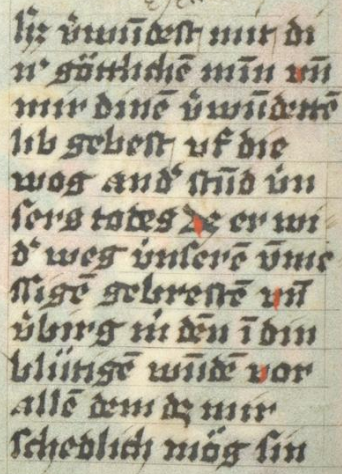 hᵉz v̓wūdest mit di
ir göttlichē mīn vn̄
mir dinē v̓wūdettē
lib gebest vf die
wog and᾽ stūd vn
sers todes dc er wi
d᾽ weg vnserē v̄me
ssigē gebrestē vn̄
v̓birg in dēn ī din
blütigē wūdē vor
allē dem dz mir
schedlich mög sin